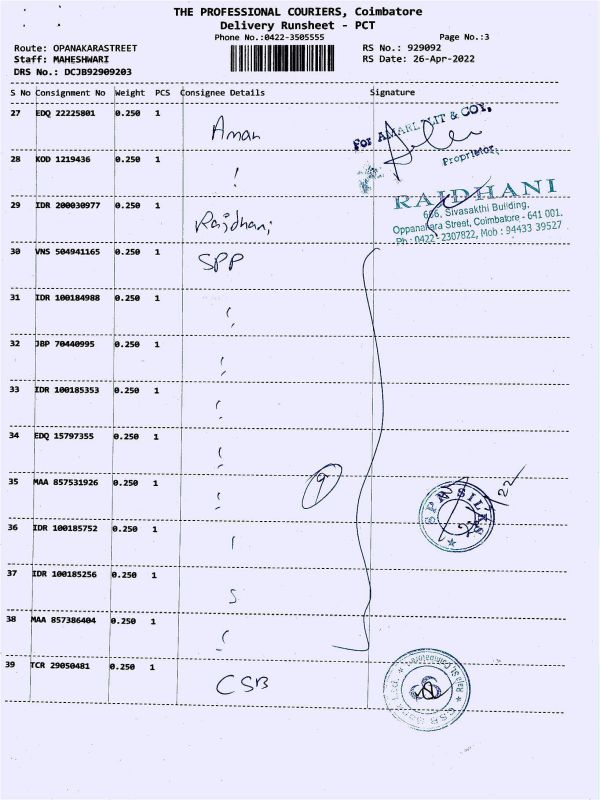 THE PROFESSIONAL COURIERS, Coimbatore
Delivery Runsheet - PCT
Phone No.:0422-3505555
Page No.:3
Route: OPANAKARASTREET
RS No.: 929092
Staff: MAHESHWARI
RS Date: 26-Apr-2022
DRS No.: DCJB92909203
S No Consignment No Weight PCS Consignee Details Signature
27 EDQ 22225801 0.250 1
For AMARLLIT & COY.
Aman
Proprietor.
28 KOD 1219436 0.250 1
29 IDR 200030977 0.250 1
Rajdhani
RAJDHANI
686, Sivasakthi Building,
Oppanakara Street, Coimbatore - 641 001.
Ph : 0422 - 2307822, Mob : 94433 39527
30 VNS 504941165 0.250 1 SPP
31 IDR 100184988 0.250 1
32 JBP 70440995 0.250 1
33 IDR 100185353 0.250 1
34 EDQ 15797355 0.250 1
35 MAA 857531926 0.250 1
9
SPP SILKS
36 IDR 100185752 0.250 1
37 IDR 100185256 0.250 1
38 MAA 857386404 0.250 1
39 TCR 29050481 0.250 1
CSB